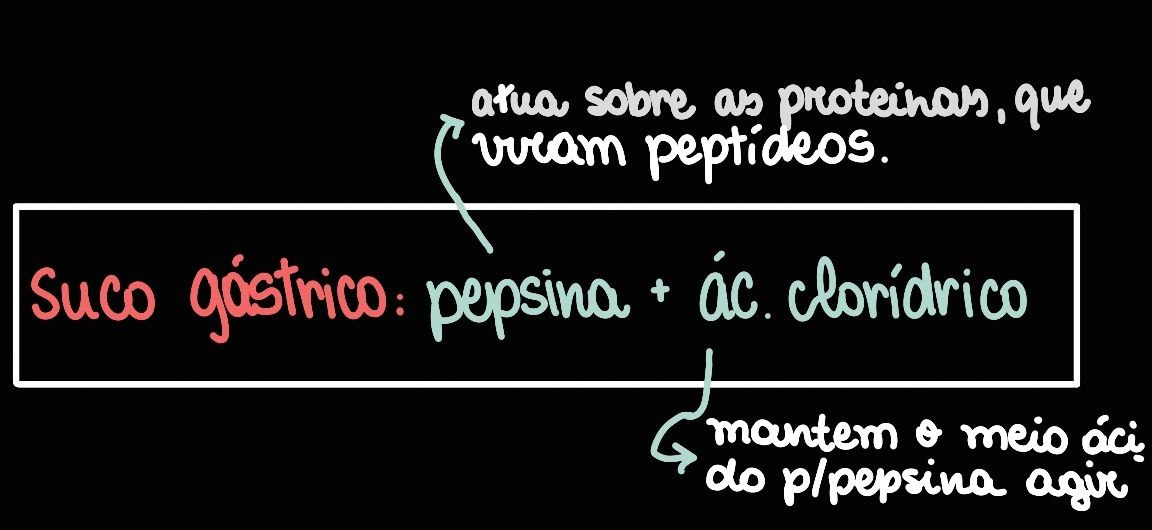 atua sobre as proteínas, que
viram peptídeos.
Suco gástrico: pepsina + ác. clorídrico
mantem o meio áci
do p/pepsina agir